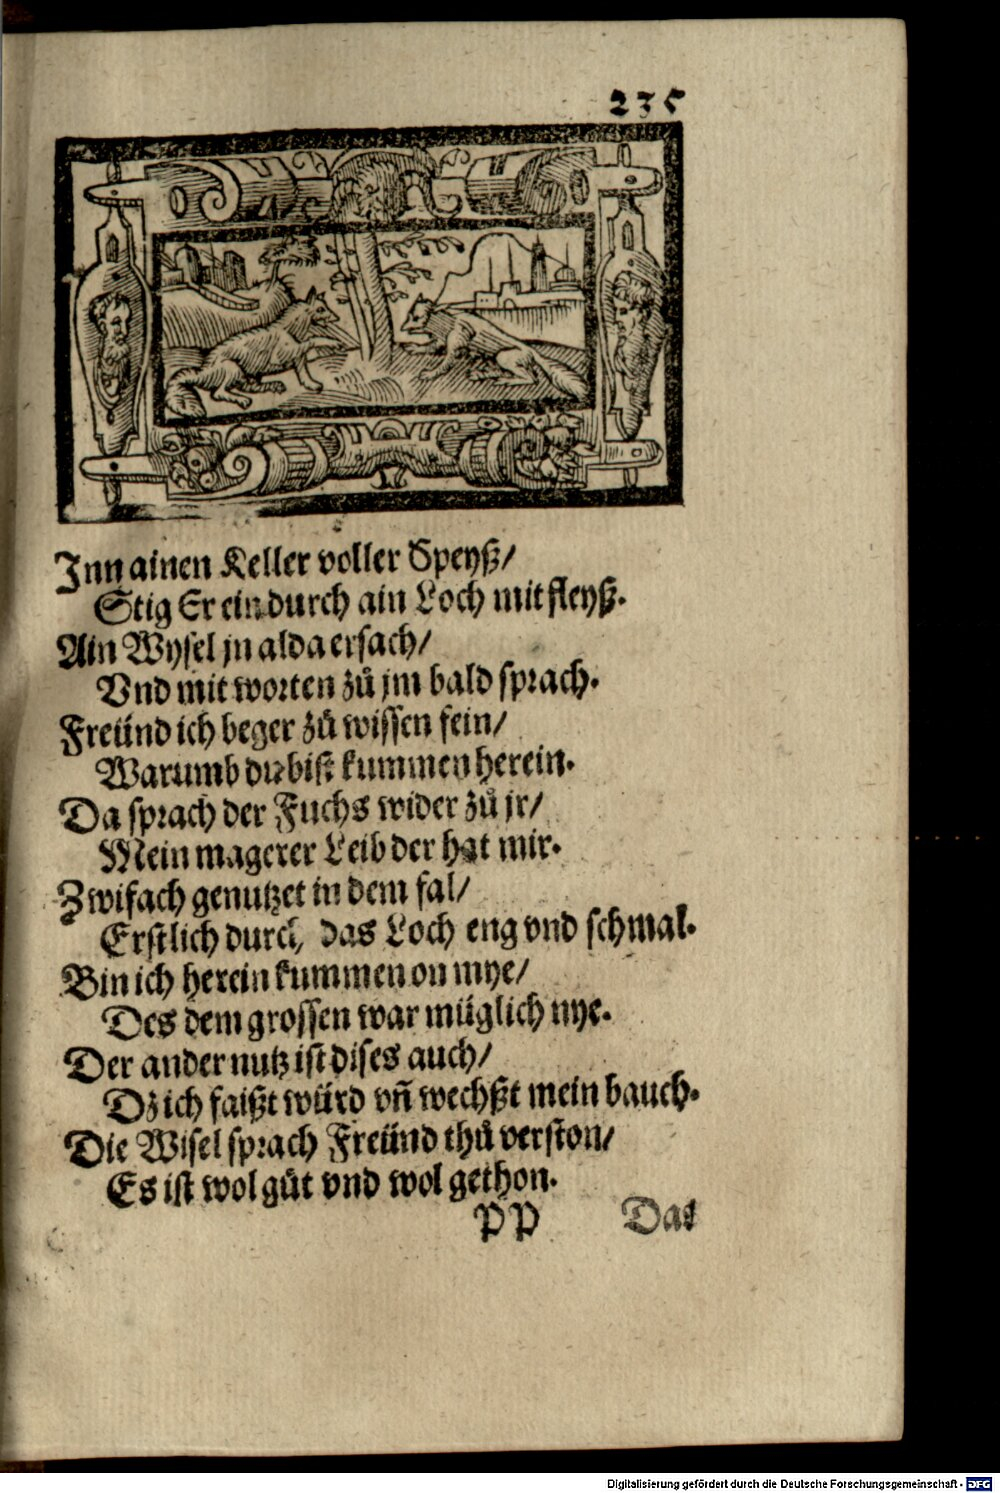 235
Inn ainen Keller voller Speyß/
Stig Er ein durch ain Loch mit fleyß.
Ain Wysel jn alda ersach/
Vnd mit worten zů jm bald sprach.
Freünd ich beger zů wissen fein/
Warumb du bist kummen herein.
Da sprach der Fuchs wider zů jr/
Mein magerer Leib der hat mir.
Zwifach genutzet in dem fal/
Erstlich durch das Loch eng vnd schmal.
Bin ich herein kummen on mye/
Des dem grossen war müglich nye.
Der ander nutz ist dises auch/
Dz ich faißt würd vñ wechßt mein bauch.
Die Wisel sprach Freünd thů verston/
Es ist wol gůt vnd wol gethon.
PP Das
Digitalisierung gefördert durch die Deutsche Forschungsgemeinschaft - DFG